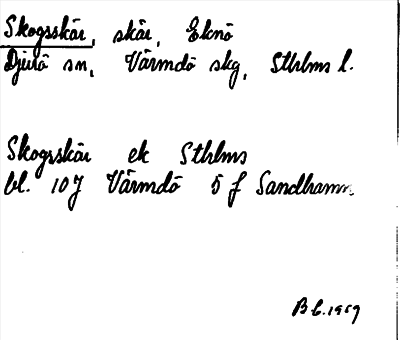 Skogsskär, skär, Eknö
Djurö sn, Värmdö skg, Sthlms l.
Skogsskär ek Sthlms
bl. 107 Värmdö 5 f Sandhamn
B C. 1959